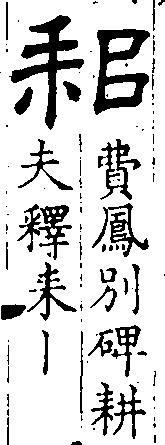 耜
費鳳別碑耕
夫釋耒丨